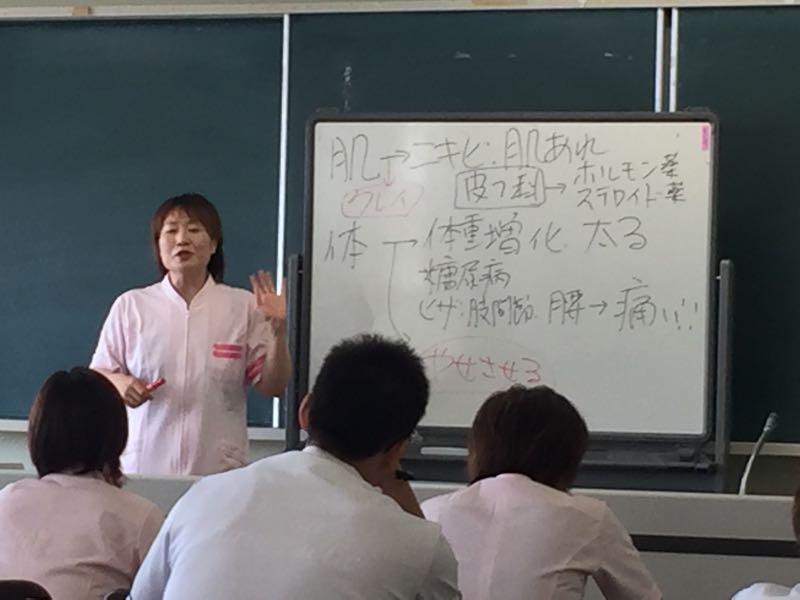 肌→ニキビ・肌あれ
皮フ科→ホルモン薬
ステロイド薬
キレイ
体→体重増化 太る
糖尿病
ヒザ・股関節・腰→痛い!!
やせさせる